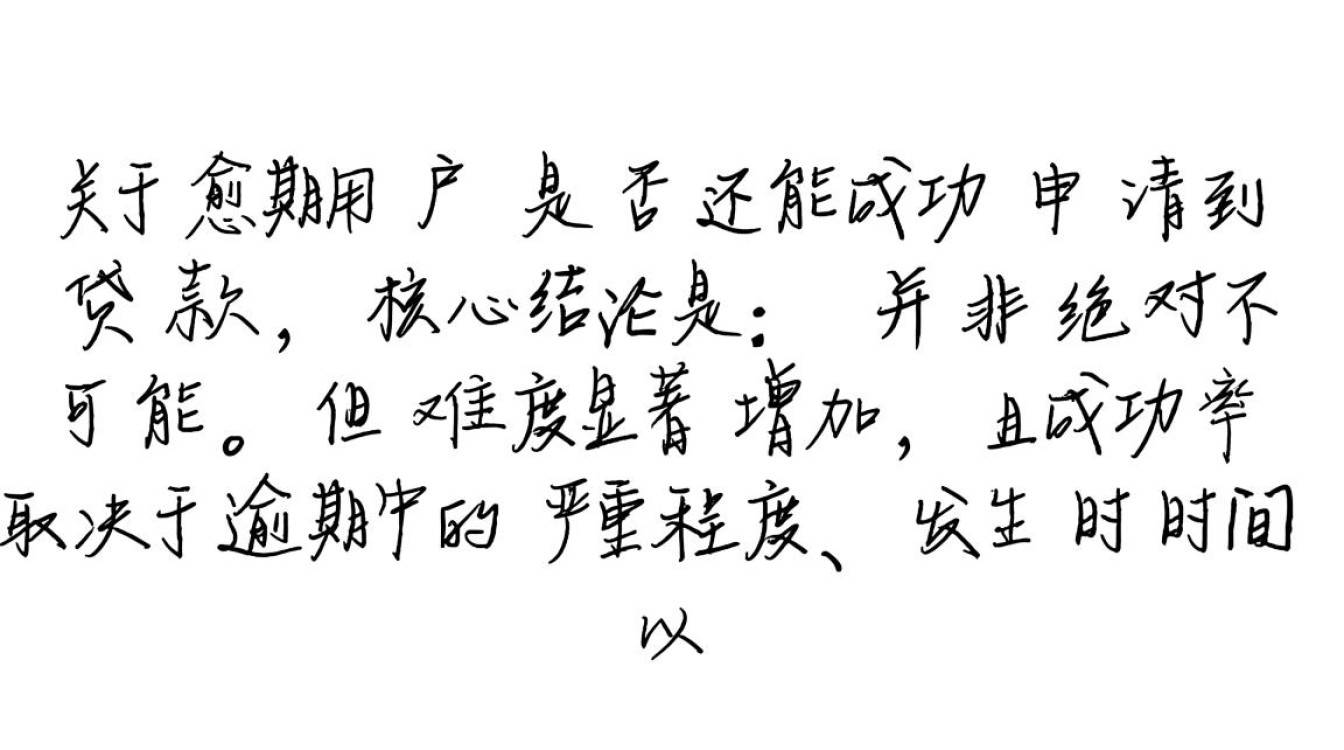 关于愈期用户是否还能成功申请到
贷款，核心结论是：并非绝对不
可能。但难度显著增加，且成功率
取决于逾期中的严重程度、发生时时间
以